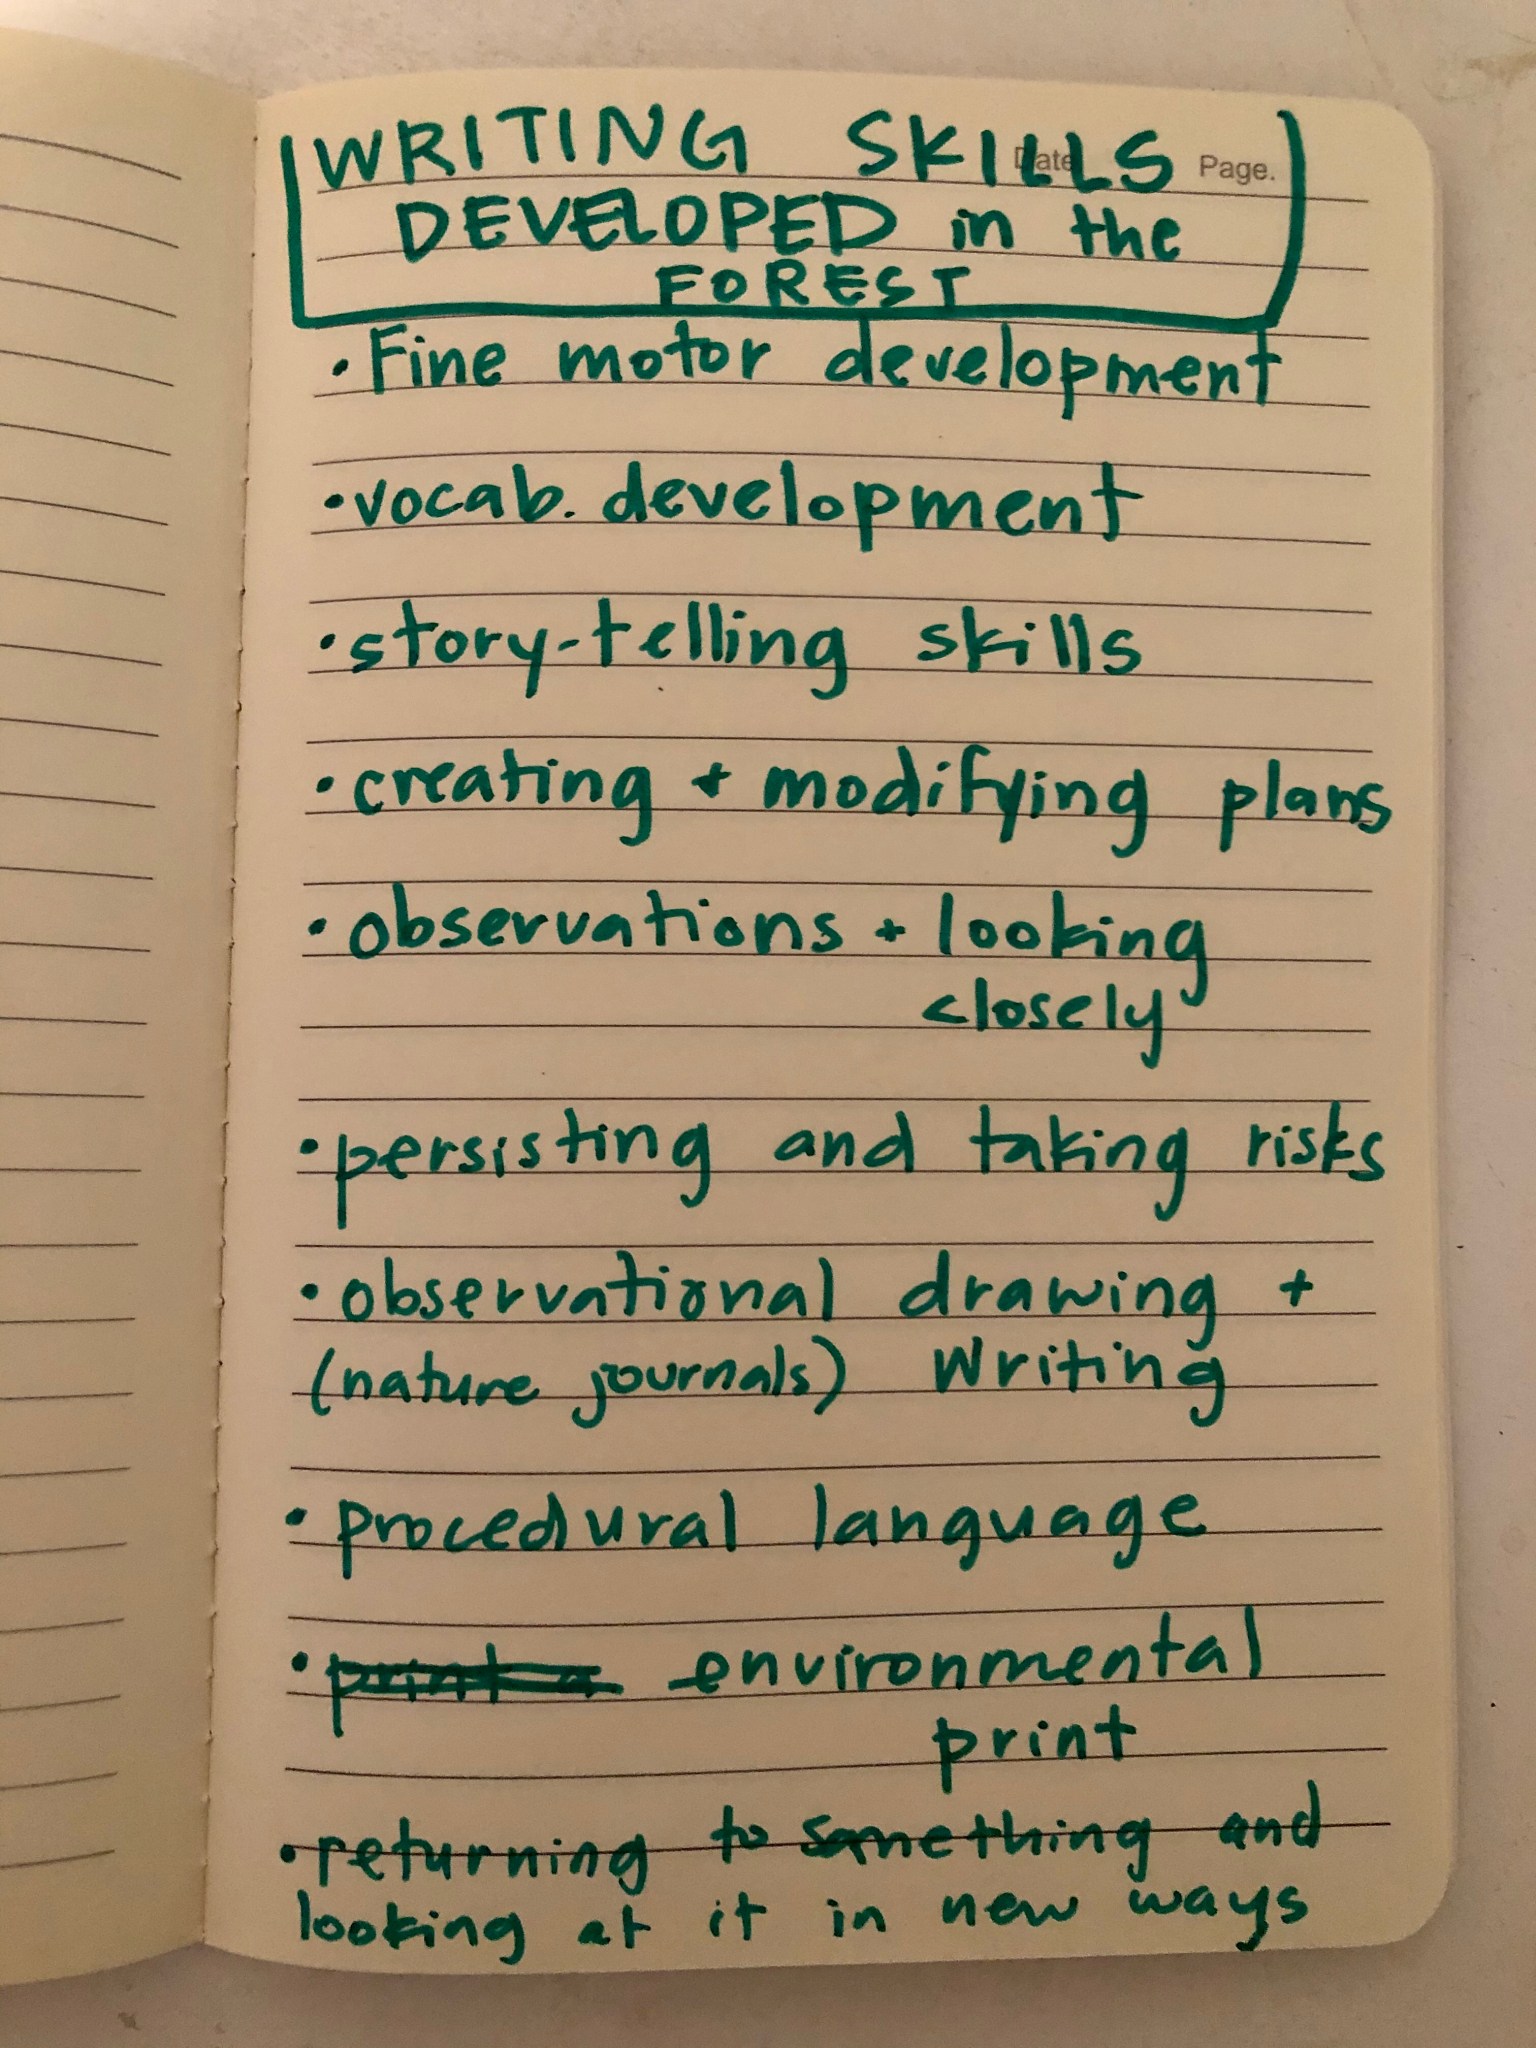 WRITING SKILLS
Date Page.
DEVELOPED in the
FOREST
• Fine motor development
• vocab. development
• story-telling skills
• creating + modifying plans
• observations + looking
closely
• persisting and taking risks
• observational drawing +
(nature journals) Writing
• procedural language
• print a environmental
print
• returning to something and
looking at it in new ways